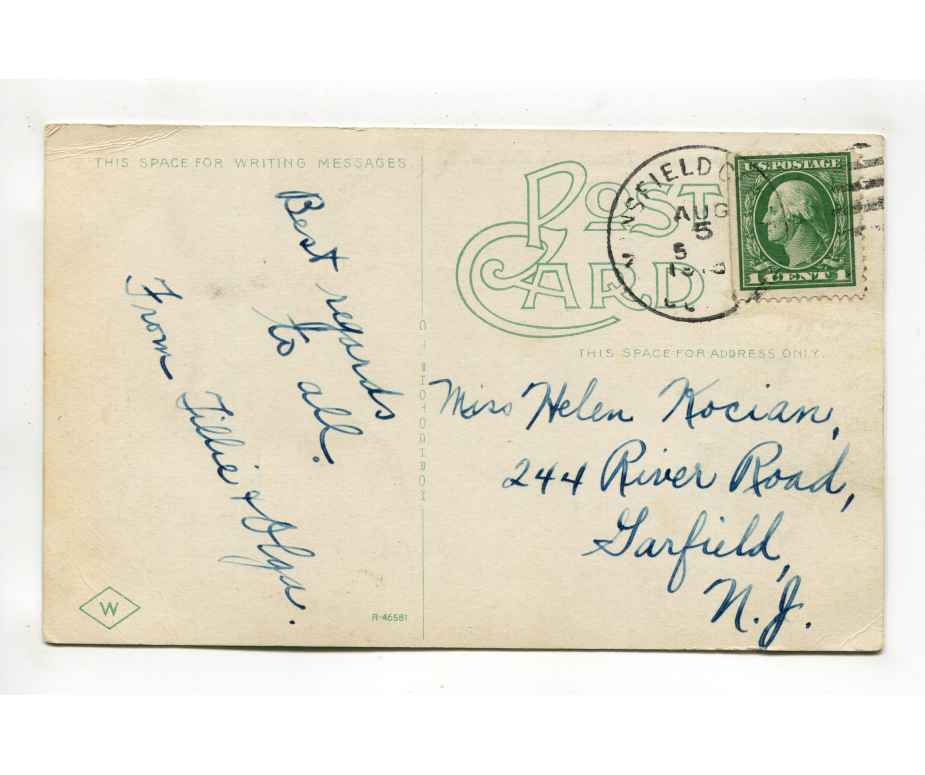 THIS SPACE FOR WRITING MESSAGES
Best regards
to all.
From Tillie & Olga.
W
R-46581
POST
CARD
AUG
5
5
U.S. POSTAGE
1 CENT 1
THIS SPACE FOR ADDRESS ONLY.
Miss Helen Kocian,
244 River Road,
Garfield,
N.J.